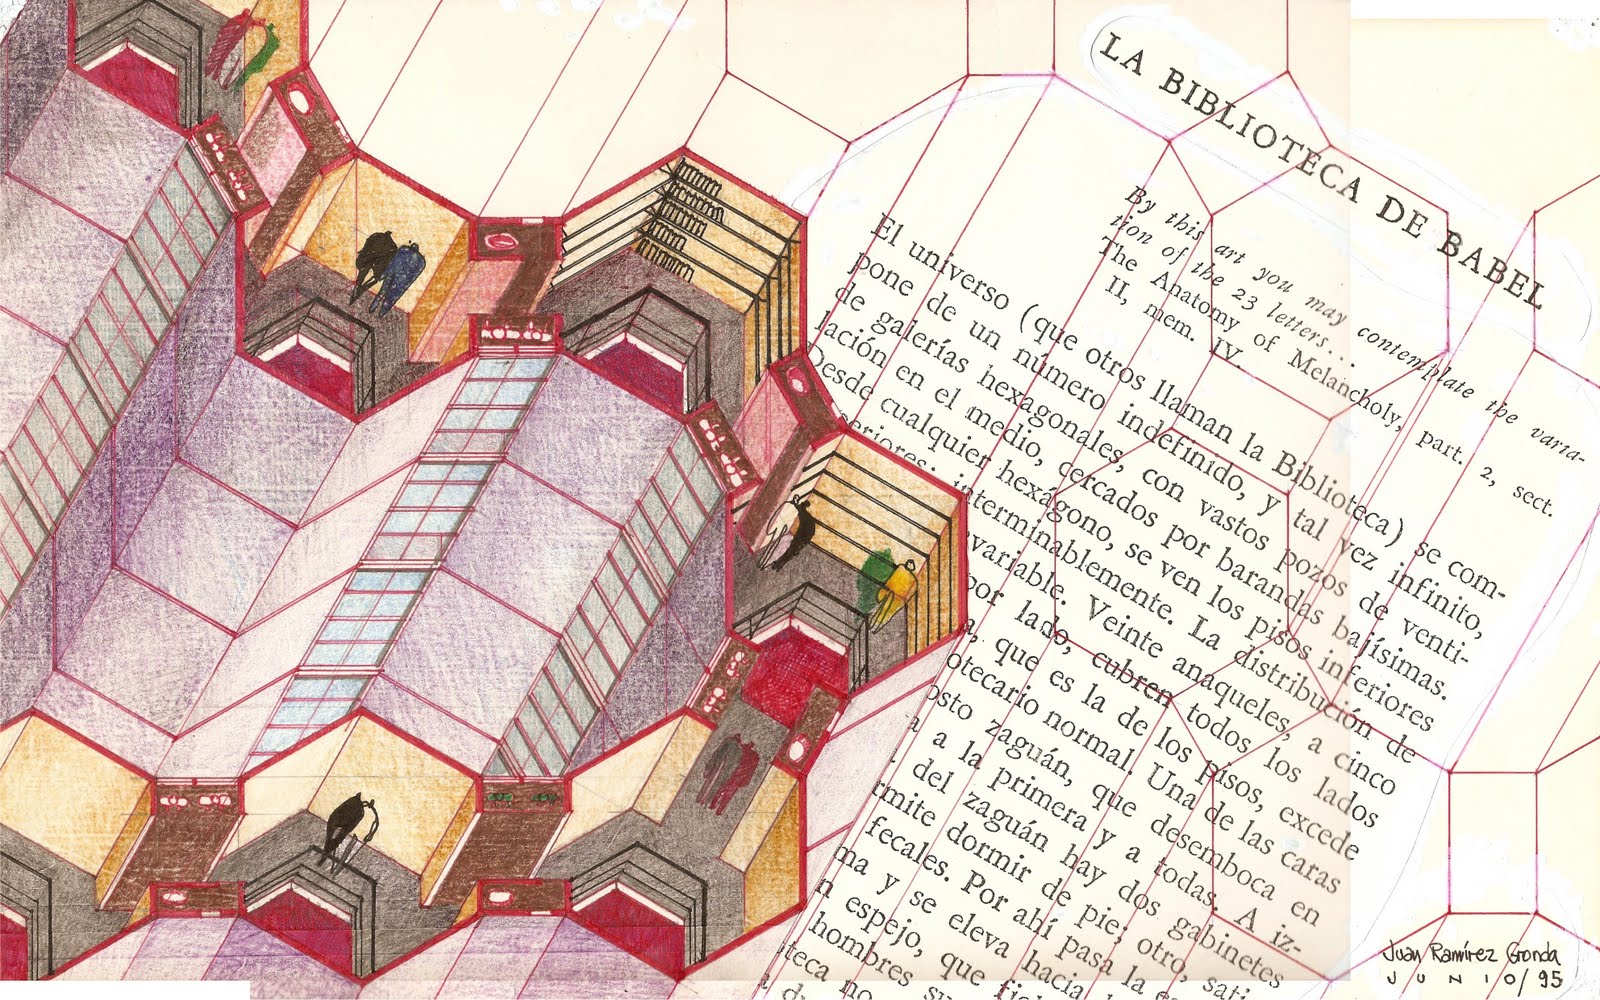 LA BIBLIOTECA DE BABEL
By this art you may contemplate the varia-
tion of the 23 letters...
The Anatomy of Melancholy, part. 2, sect.
II, mem. IV.
El universo (que otros llaman la Biblioteca) se com-
pone de un número indefinido, y tal vez infinito,
de galerías hexagonales, con vastos pozos de venti-
lación en el medio, cercados por barandas bajísimas.
Desde cualquier hexágono, se ven los pisos inferiores
eriores: interminablemente. La distribución de
variable. Veinte anaqueles, a cinco
por lado, cubren todos los lados
a, que es la de los pisos, excede
otecario normal. Una de las caras
osto zaguán, que desemboca en
a a la primera y a todas. A iz-
del zaguán hay dos gabinetes
rmite dormir de pie; otro, sati-
fecales. Por ahí pasa la es
ma y se eleva hacia
n espejo, que fiel
hombres su
teca no
Juan Ramírez Gronda
JUNIO/95